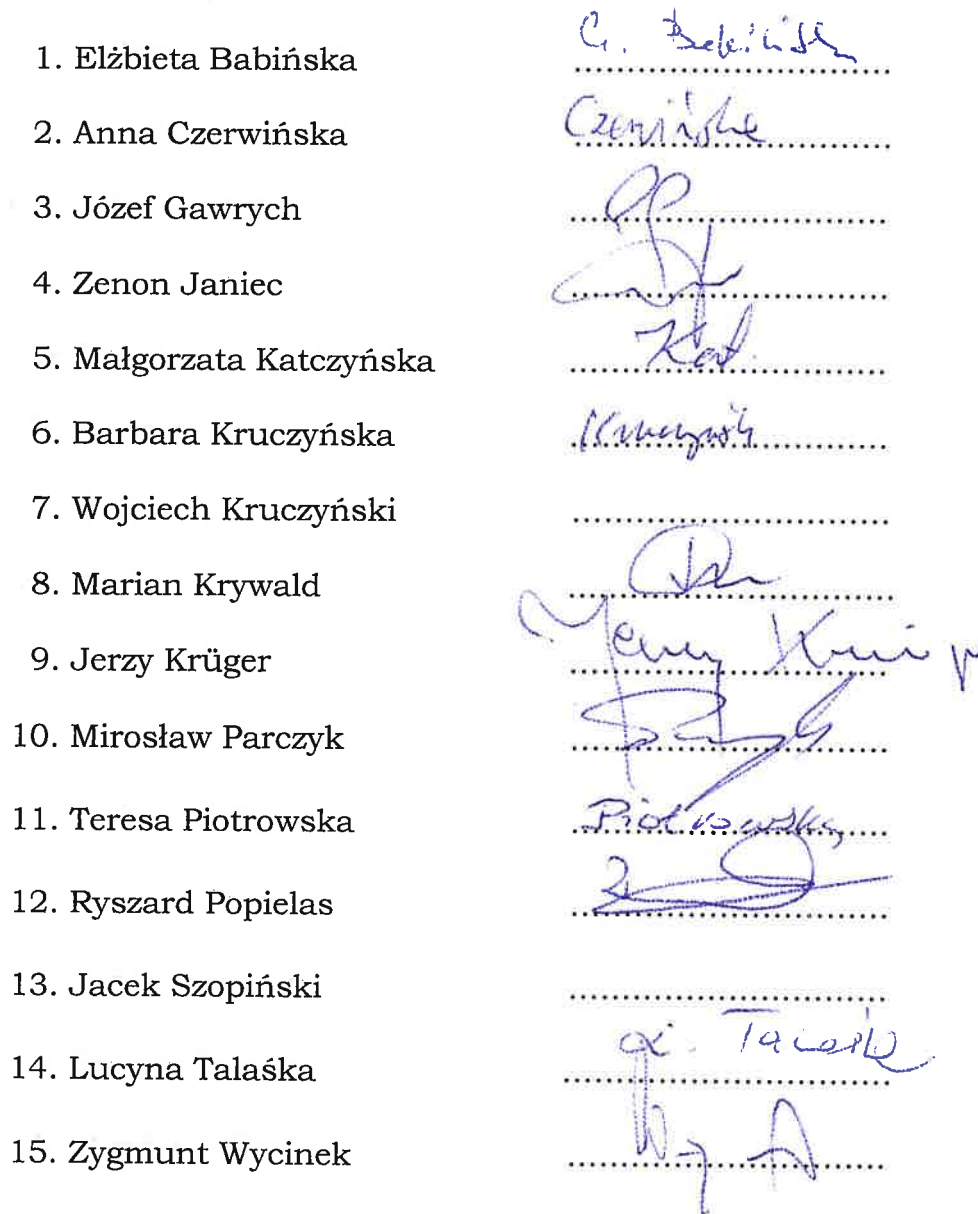 1. Elżbieta Babińska
2. Anna Czerwińska Czerwińska
3. Józef Gawrych
4. Zenon Janiec
5. Małgorzata Katczyńska Kat.
6. Barbara Kruczyńska
7. Wojciech Kruczyński
8. Marian Krywald
9. Jerzy Krüger Jerzy
10. Mirosław Parczyk
11. Teresa Piotrowska Piotrowska
12. Ryszard Popielas
13. Jacek Szopiński
14. Lucyna Talaśka
15. Zygmunt Wycinek